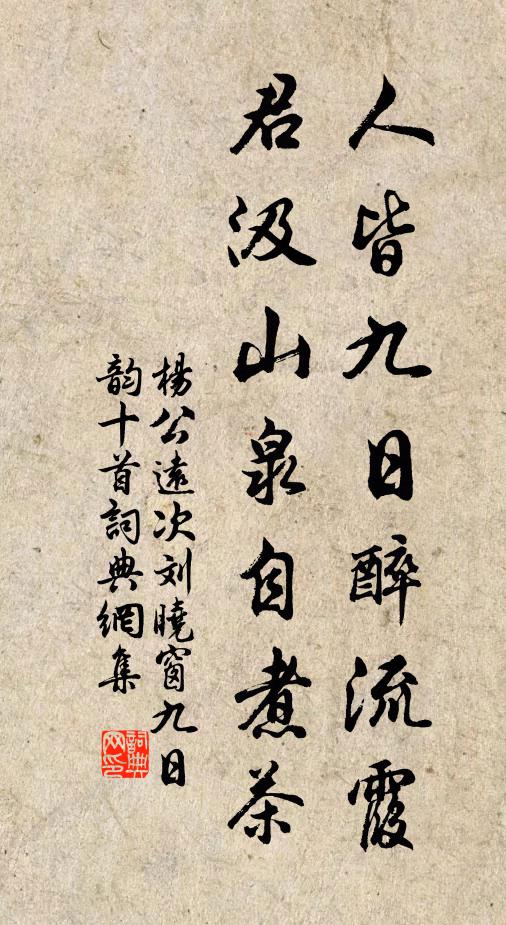 人皆九日醉流霞
君汲山泉自煮茶
楊公遠次刘曉窗九日
韵十首詞典網集
詞典网印